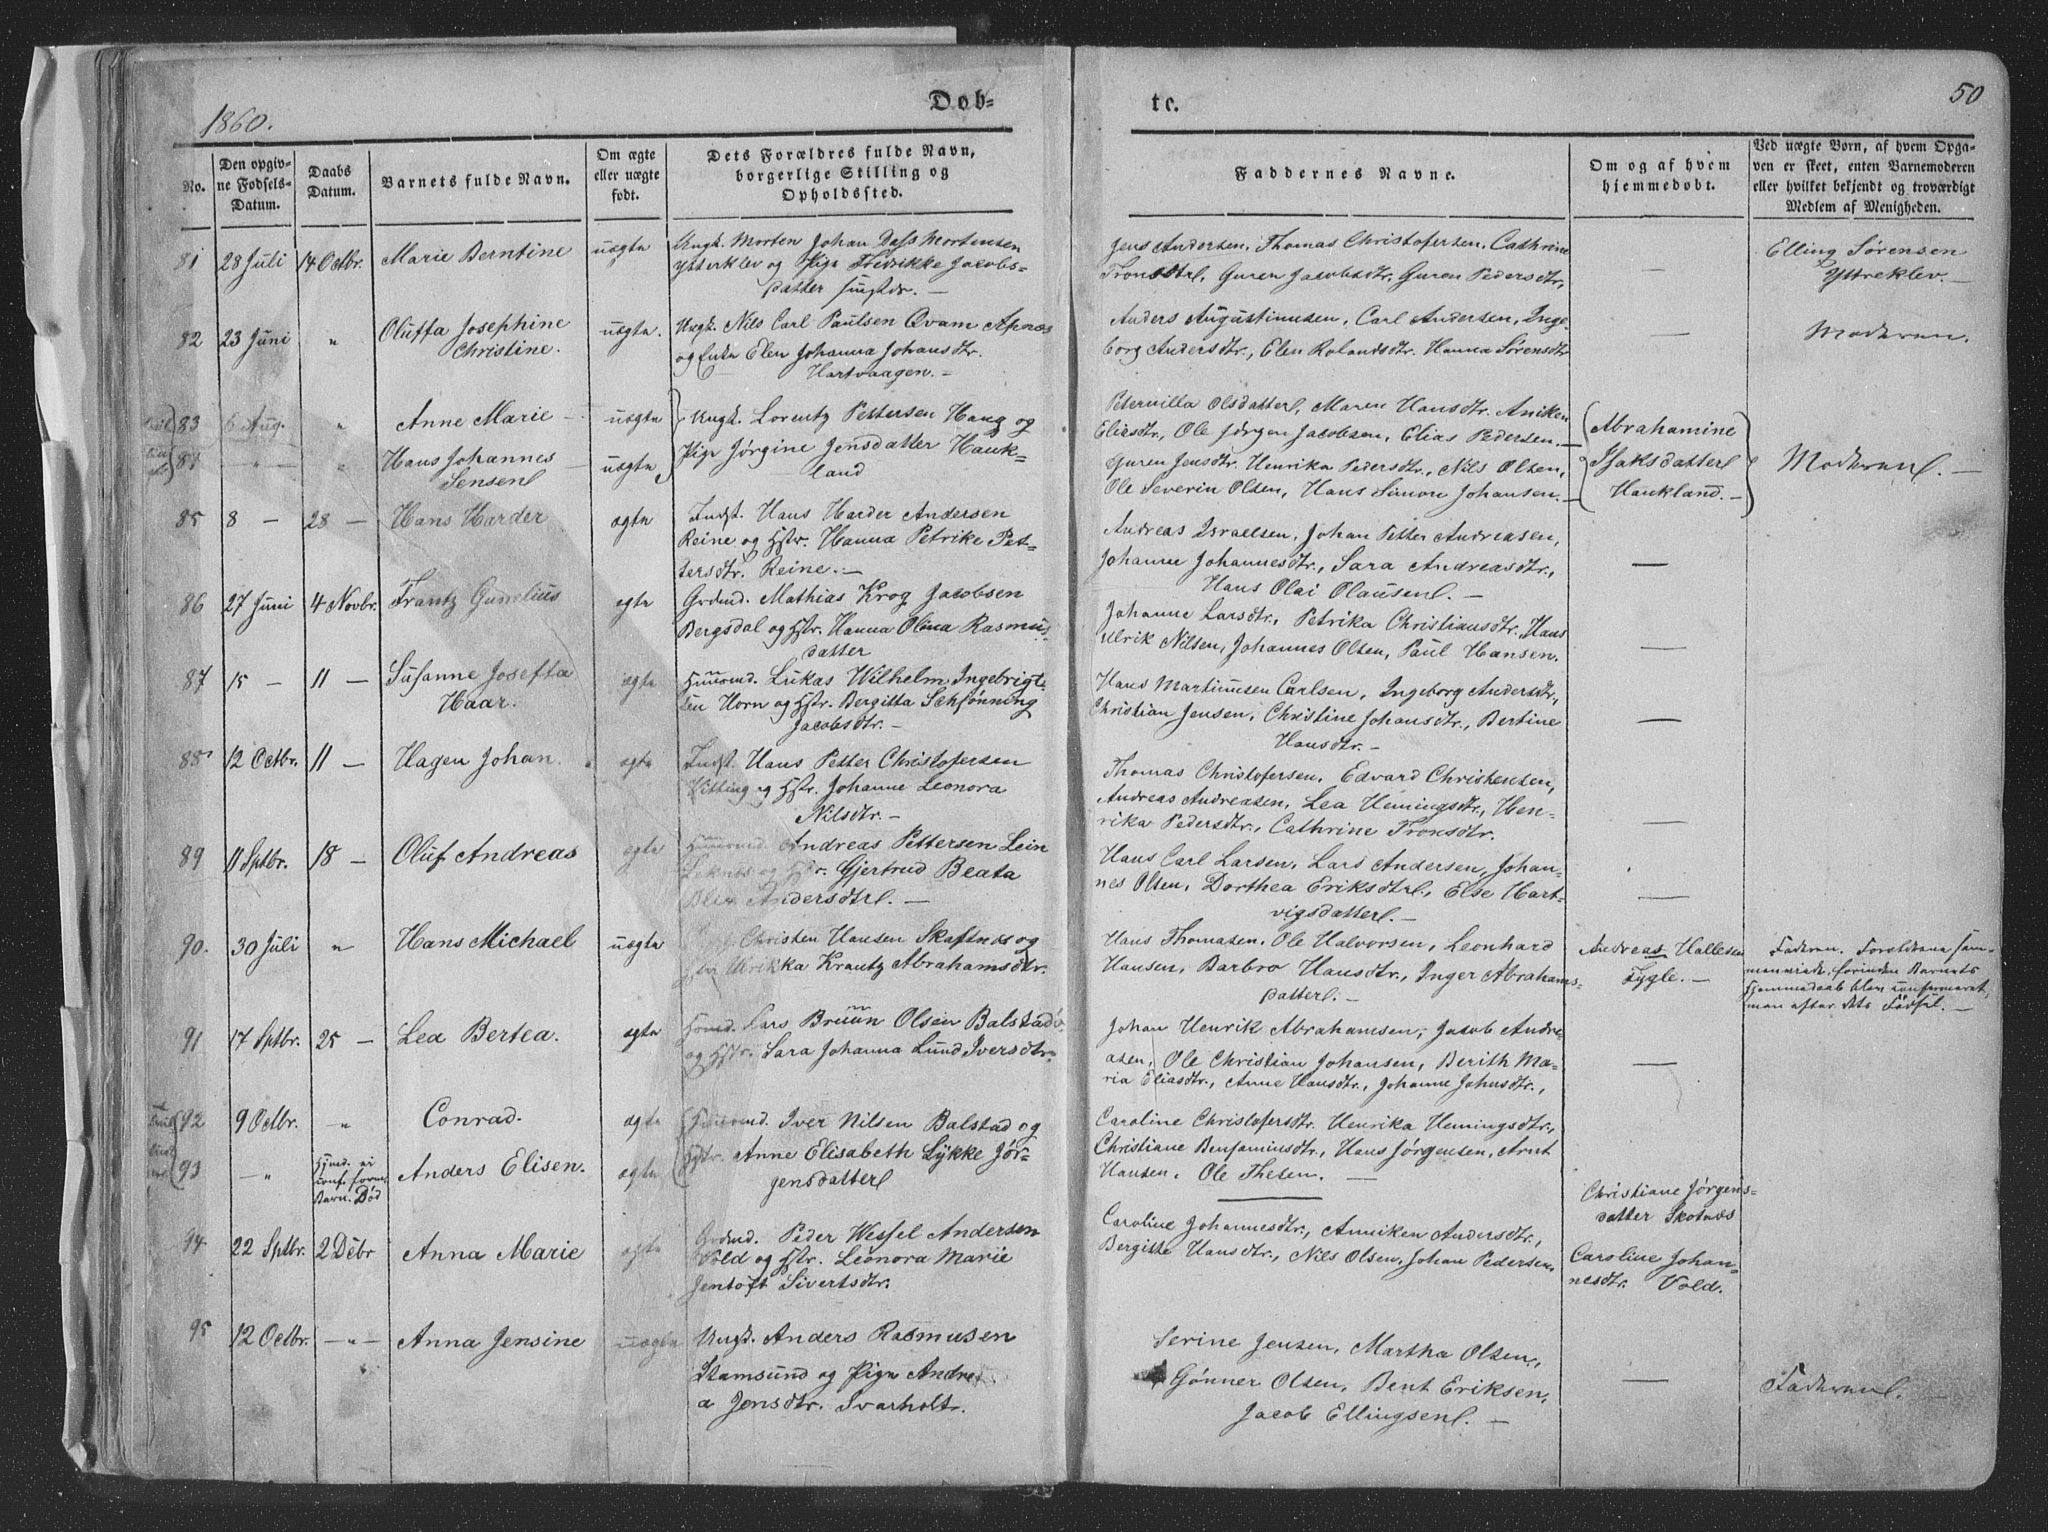 1860.
Døb-
te.
50
No.
Den opgiv-
ne Fødsels-
Datum.
Daabs
Datum.
Barnets fulde Navn.
Om ægte
eller uægte
født.
Dets Forældres fulde Navn,
borgerlige Stilling og
Opholdssted.
Faddernes Navne.
Om og af hvem
hjemmedøbt.
Ved uægte Børn, af hvem Opga-
ven er skeet, enten Barnemoderen
eller hvilket bekjendt og troværdigt
Medlem af Menigheden.
81 28 Juli 14 Octbr. Marie Berntine uægte Ungk. Morten Johan Dass Mortensen
Ytterklev og Pige Fredrikke Jacobs-
datter
Jens Andersen, Thomas Christofersen, Cathrine
Tronsdtr, Guren Jacobsdtr, Guren Pedersdtr,
—
Elling Sørensen
Yttreklev.—
82 23 Juni " Oluffa Josephine
Christine.
uægte. Ungk. Nils Carl Paulsen Qvam
og Enke Elen Johanna Johansdtr.
Hartvaagen.—
Anders Augustinusen, Carl Andersen, Inge-
borg Andersdtr., Elen Rolandsdtr. Hanna Sørensdtr
—
Moderen.
83 6 Aug. " Anne Marie uægte Ungk. Lorentz Pettersen Haug og
84 — " — " Hans Johannes
Jensen
uægte Pige Jørgine Jensdatter Hauk-
land
Petervilla Olsdatter, Maren Hansdtr. Aniken
Eliasdtr., Ole Jørgen Jacobsen, Elias Pedersen.—
Guren Jensdtr, Henrika Pedersdtr., Nils Olsen,
Ole Severin Olsen, Hans Simon Johansen.—
Abrahamine
Isaksdatter
Haukland.—
Moderen.—
85 8 — 28 — Hans Harder ægte Indst. Hans Harder Andersen
Reine og Hstr. Hanna Petrike Pet-
tersdtr. Reine.—
Andreas Israelsen, Johan Petter Andreasen,
Johanne Johannesdtr., Sara Andreasdtr.,
Hans Olai Olausen.—
—
86 27 Juni 4 Novbr. Frantz Gunelius ægte Grdmd. Mathias Krog Jacobsen
Bergsdal og Hstr. Hanna Olina Rasmus-
datter
Johanne Larsdtr., Petrika Christiansdtr., Hans
Ulrik Nilsen, Johannes Olsen, Paul Hansen.
87 15 — 11 — Susanne Josefta
Haar.
ægte Huusmd. Lukas Wilhelm Ingebrigt-
sen Horn og Hstr. Bergitta Schjønning
Jacobsdtr.—
Hans Martinusen Carlsen, Ingeborg Andersdtr,
Christian Jensen, Christine Johansdtr., Bertine
Hansdtr.—
—
88 12 Octbr. 11 — Hagen Johan. ægte Indst. Hans Petter Christofersen
og Hstr. Johanne Leonora
Nilsdtr.—
Thomas Christofersen, Edvard Christensen,
Andreas Andreasen, Lea Hemingsdtr., Hen-
rika Pedersdtr., Cathrine Tronsdtr.
89 11 Sptbr. 18 — Oluf Andreas ægte Huusmd. Andreas Pettersen Lein
Leknes og Hstr. Gjertrud Beata
Blix Andersdtr.—
Hans Carl Larsen, Lars Andersen, Johan-
nes Olsen, Dorthea Eriksdtr., Else Hart-
vigsdatter.—
—
90. 30 Juli " Hans Michael uægte Christen Hansen Skaftnæs og
Ulrikka Krantz Abrahamsdtr.
Hans Thomasen, Ole Halvorsen, Leonhard
Hansen, Barbro Hansdtr., Inger Abrahams-
datter.—
Andreas Hallesen
Fygle.—
Faderen. Forældrene sam-
menviede, forinden Barnets
Hjemmedaab blev confirmeret,
men efter dets Fødsel.—
91 17 Sptbr. 25 — Lea Bertea. ægte Lars Bruun Olsen Balstad
og Hstr. Sara Johanna Lund Iversdtr.
Johan Henrik Abrahamsen, Jacob Andre-
asen, Ole Christian Johansen, Berith Ma-
ria Eliasdtr., Anne Hansdtr., Johanne Johnsdtr.,
—
92 9 Octbr. " Conrad. ægte Huusmd. Iver Nilsen Balstad og
93 — " Hjmd. ei
conf. foren.
Barn. Død
Anders Elisen. ægte Hstr. Anne Elisabeth Lykke Jør-
gensdatter
Caroline Christofersdtr. Henrika Hemingsdtr.,
Christiane Benjaminsdtr., Hans Jørgensen, Arnt
Hansen, Ole Thesen.—
Christiane Jørgens-
datter Skotnæs
94. 22 Sptbr. 2 Debr Anna Marie ægte Grdmd. Peder Wessel Andersen
Vold og Hstr. Leonora Marie
Jentoft Sivertsdtr.
Caroline Johannesdtr., Anniken Andersdtr.,
Bergitte Hansdtr., Nils Olsen, Johan Pedersen.
Caroline Johan-
nesdtr. Vold.
95 12 Octbr. — " — Anna Jensine uægte Ungk. Anders Rasmusen
Stamsund og Pige Andre-
a Jensdtr. Svarholt.
Serine Jensen, Martha Olsen,
Gønner Olsen, Bent Eriksen,
Jacob Ellingsen.—
—
Faderen.—